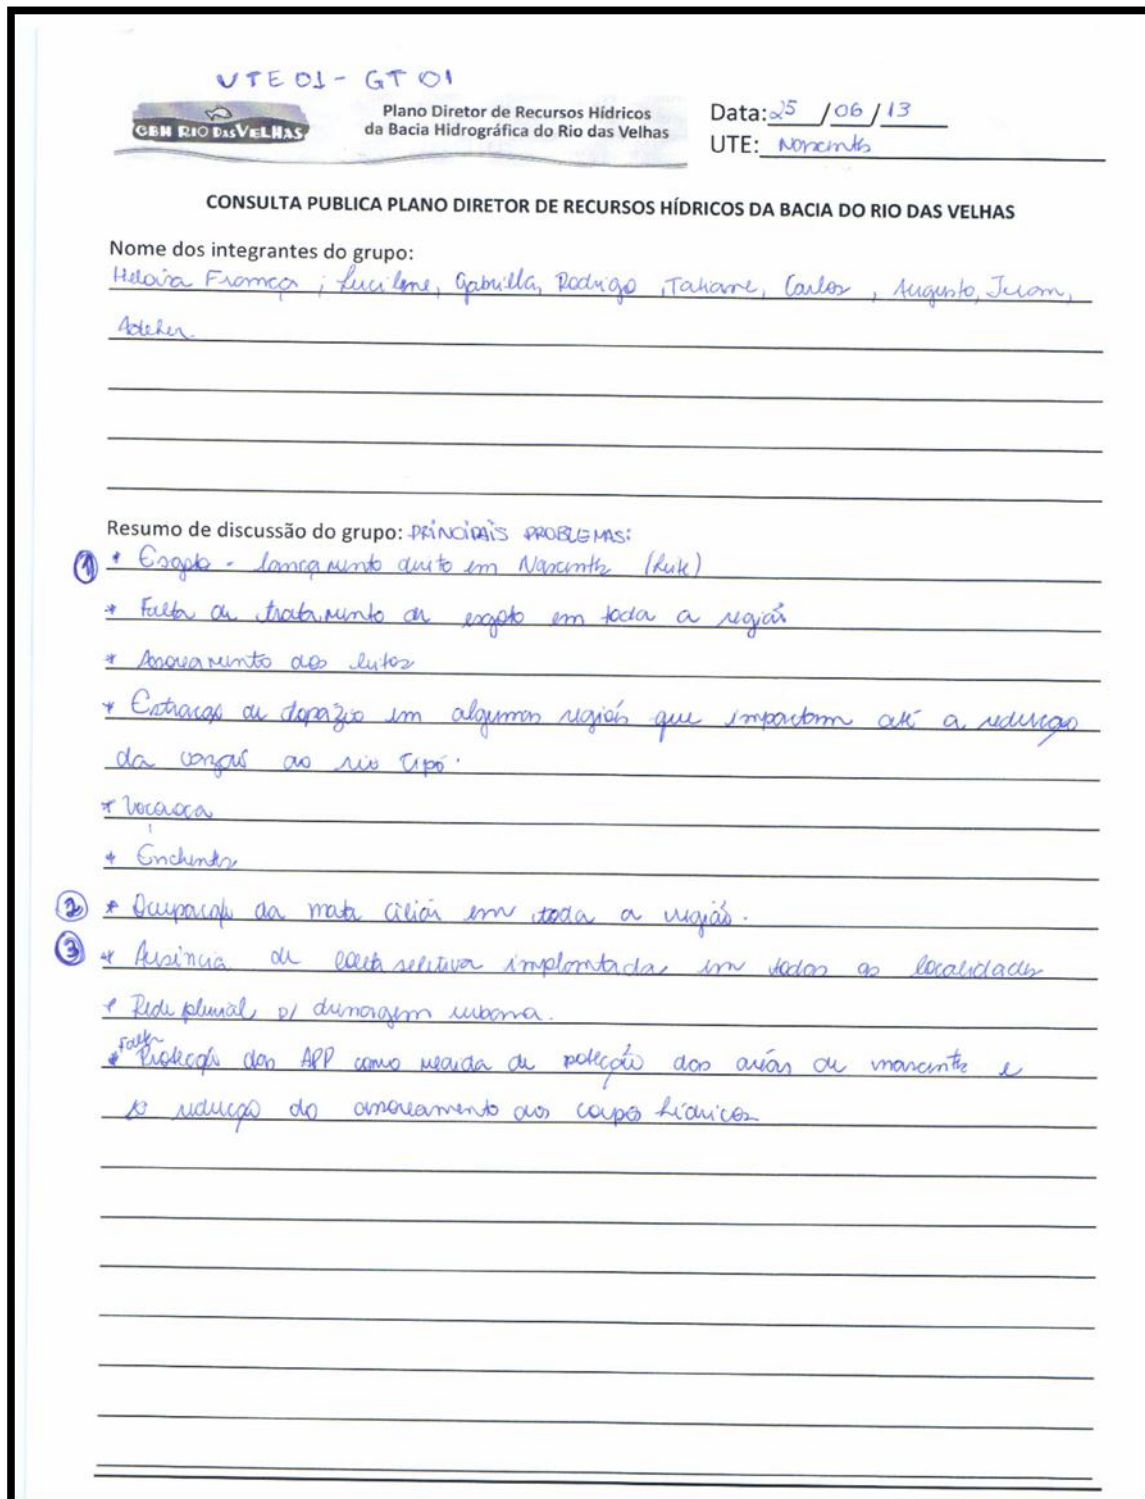 UTE 01 - GT 01
CBH RIO DAS VELHAS
Plano Diretor de Recursos Hídricos
da Bacia Hidrográfica do Rio das Velhas
Data: 25 / 06 / 13
UTE: Nascentes
CONSULTA PUBLICA PLANO DIRETOR DE RECURSOS HÍDRICOS DA BACIA DO RIO DAS VELHAS
Nome dos integrantes do grupo:
Heloisa França ; Lucilene, Gabriella, Rodrigo , Tatiane, Carlos , Augusto, Juan,
Resumo de discussão do grupo: PRINCIPAIS PROBLEMAS:
① * Esgoto - lançamento direto em Nascentes (Leite)
* Falta de tratamento de esgoto em toda a região
* Assoreamento dos leitos
* Extração de topázio em algumas regiões que impactam até a redução
da vazão do rio Cipó.
* Voçoroca
* Enchentes
② * Ocupação da mata ciliar em toda a região.
③ * Ausência de coleta seletiva implantada em todas as localidades
* Rede pluvial p/ drenagem urbana.
* Falta Proteção das APP como medida de proteção das áreas de nascentes e
p redução do assoreamento dos corpos hídricos